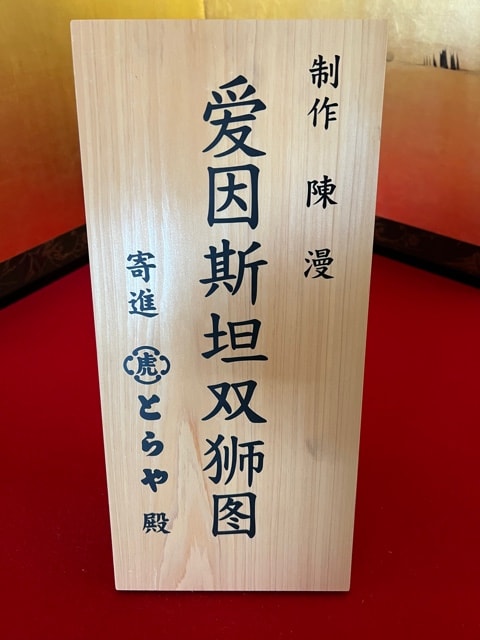 制作 陳漫
爱因斯坦双狮图
寄進 虎 とらや 殿